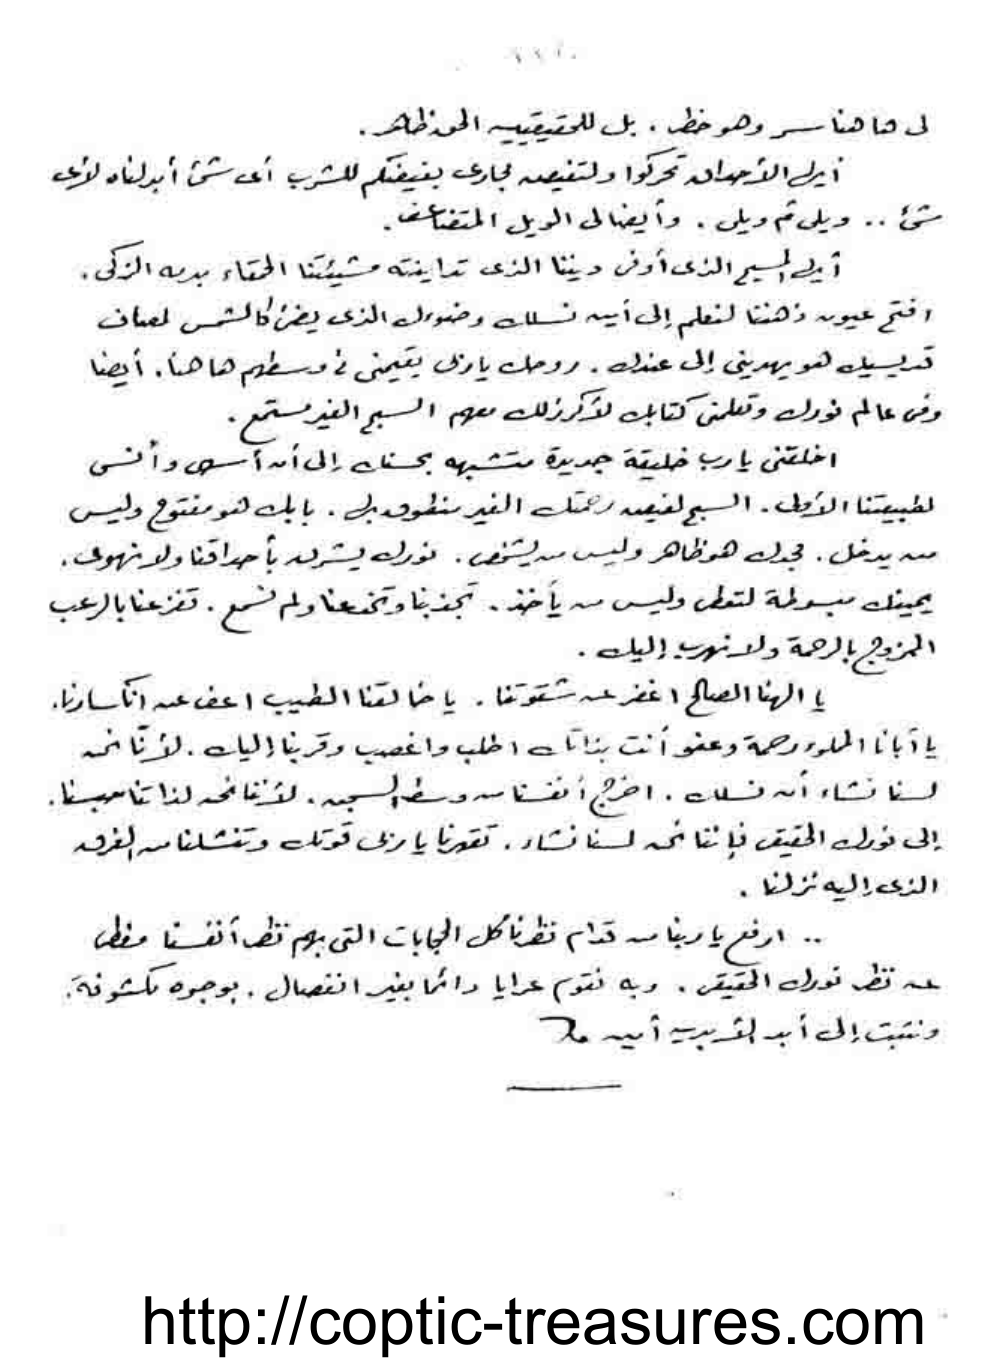 لى ها هنا سر وهو خطر . بل للحقيقيين الحق ظاهر .
أيها الأحداق تحركوا ولتفيض مجارى بفيضكم للشرب أى شئ أبدلناه لأى
شئ .. ويلى ثم ويلى . وأيضا لى الويل المتضاعف .
أيها المسيح الذى أوفى ديننا الذى تداينته مشيئتنا الحمقاء بدمه الزكى .
افتح عيون ذهننا لنعلم إلى أين نسلك وضوءك الذى يضئ كالشمس لمصاف
قديسيك هو يهدينى إلى عندك . روحك يا ربى يقيمنى فى وسطهم ها هنا . أيضا
وفى عالم نورك وتعلمنى كتابك لأكرز لك معهم السبح الغير مستمع .
اخلقنى يا رب خليقة جديدة متشبهه بحسنك إلى أن أسهى وأنسى
لطبيعتنا الأولى . السبح لفيض رحمتك الغير منطوق بها . بابك هو مفتوح وليس
من يدخل . مجدك هو ظاهر وليس من يشخص . نورك يشرق بأحداقنا ولا نهوى .
يمينك مبسوطة لتعطى وليس من يأخذ . تجذبنا وتخدعنا ولم نسمع . تفزعنا بالرعب
الممزوج بالرحمة ولا نهرب إليك .
يا الهنا الصالح اغفر عن شقوتنا . يا خالقنا الطيب اعف عن انكسارنا .
يا أبانا المملوء رحمة وعفو أنت بذاتك اطلب واغصب وقربنا إليك . لأنّا نحن
لسنا نشاء أن نسلك . اخرج أنفسنا من وسط السجن . لأننا نحن لذاتنا حبسنا .
إلى نورك الحقيقى فإننا نحن لسنا نشاء . تقهرنا يا ربى قوتك وتنشلنا من الغرق
الذى إليه نزلنا .
.. ارفع يا ربنا من قدام نظرنا كل الحجابات التى بهم نظر أنفسنا مغطى
عن نظر نورك الحقيقى . وبه نقوم عرايا دائما بغير انفصال . بوجوه مكشوفة .
ونثبت إلى أبد الآبدين أمين
http://coptic-treasures.com